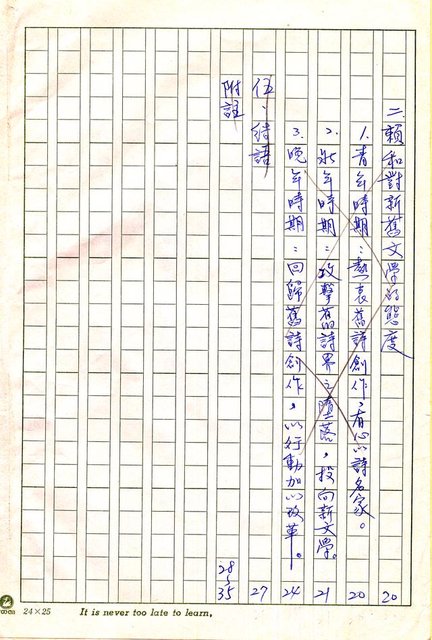 二.賴和對新舊文學的態度 20
1.青年時期：熱衷舊詩創作，有心以詩名家。 20
2.壯年時期：攻擊舊詩界之墮落，投向新文學。 21
3.晚年時期：回歸舊詩創作，以行動加以改革。 24
伍、結語 27
附註 28~35
24×25 It is never too late to learn,